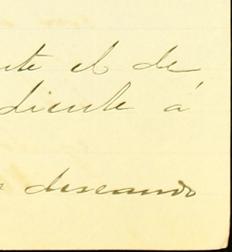 nte el de
diente á
deseando